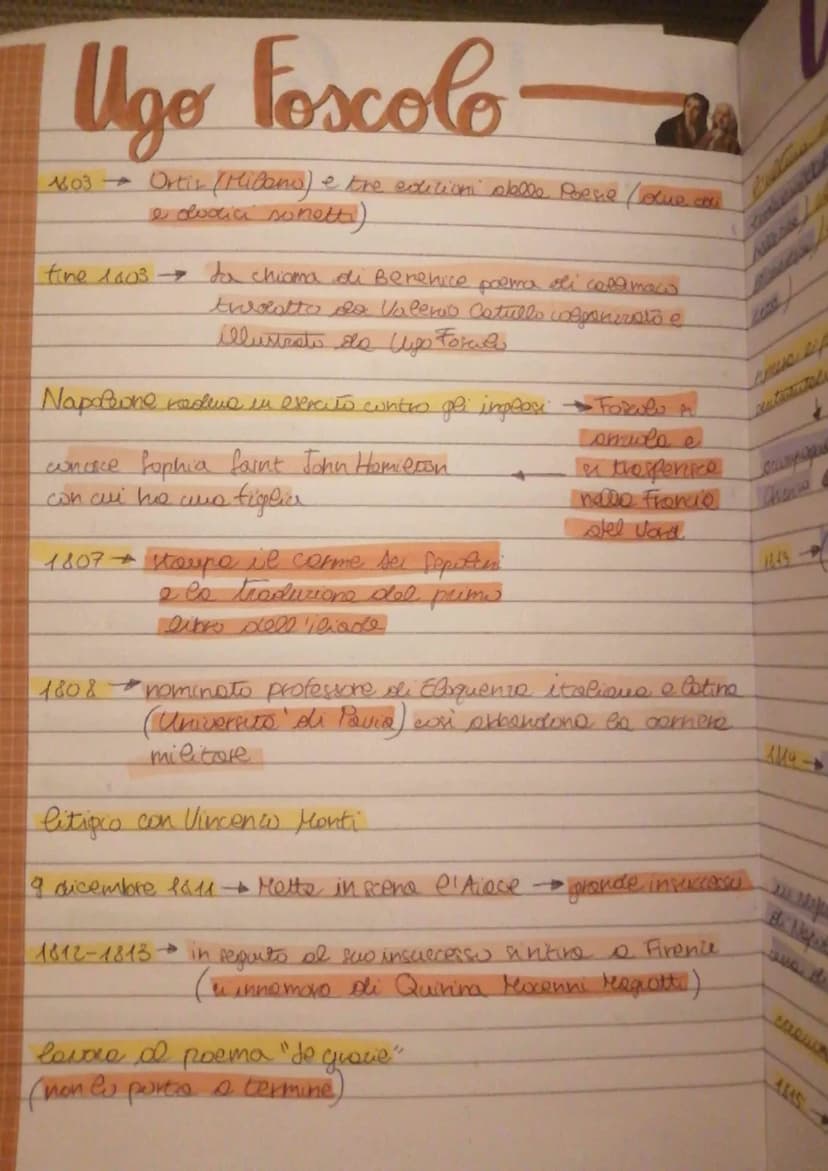 Ugo Foscolo
1803 → Ortis (Milano) e tre edizioni delle Poesie (due odi
e dodici sonetti)
fine 1803 → La chioma di Berenice poema di callimaco
tradotto da Valerio Catullo volgarizzato e
illustrato da Ugo Foscolo
Napoleone raduna un esercito contro gli inglesi → Foscolo si
arruola e
conosce Sophia Saint John Hamilton ← si trasferisce
con cui ha una figlia nella Francia
del Nord
1807 → stampa il carme Dei Sepolcri
e la traduzione del primo
libro dell'iliade
1808 → nominato professore di Eloquenza italiana e latina
(Università di Pavia) così abbandona la carriera
militare
litigio con Vincenzo Monti
9 dicembre 1811 → Mette in scena l'Aiace → grande insuccesso
1812-1813 → in seguito al suo insuccesso si ritira a Firenze
(si innamora di Quirina Mocenni Magiotti)
lavora al poema "Le grazie"
(non lo porta a termine)
1813 →
1814 →
1815 →